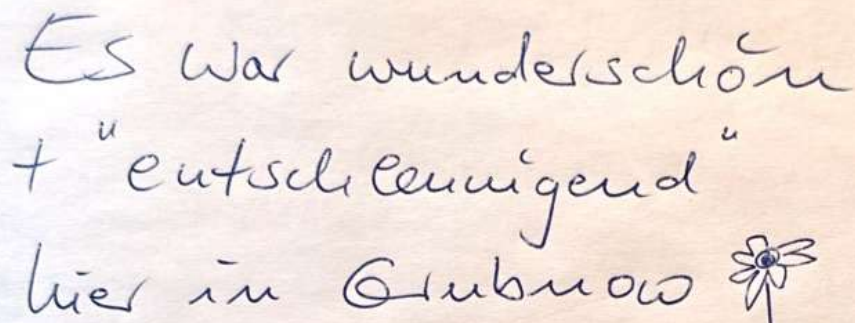 Es war wunderschön
+ "entschleunigend"
hier in Grubnow